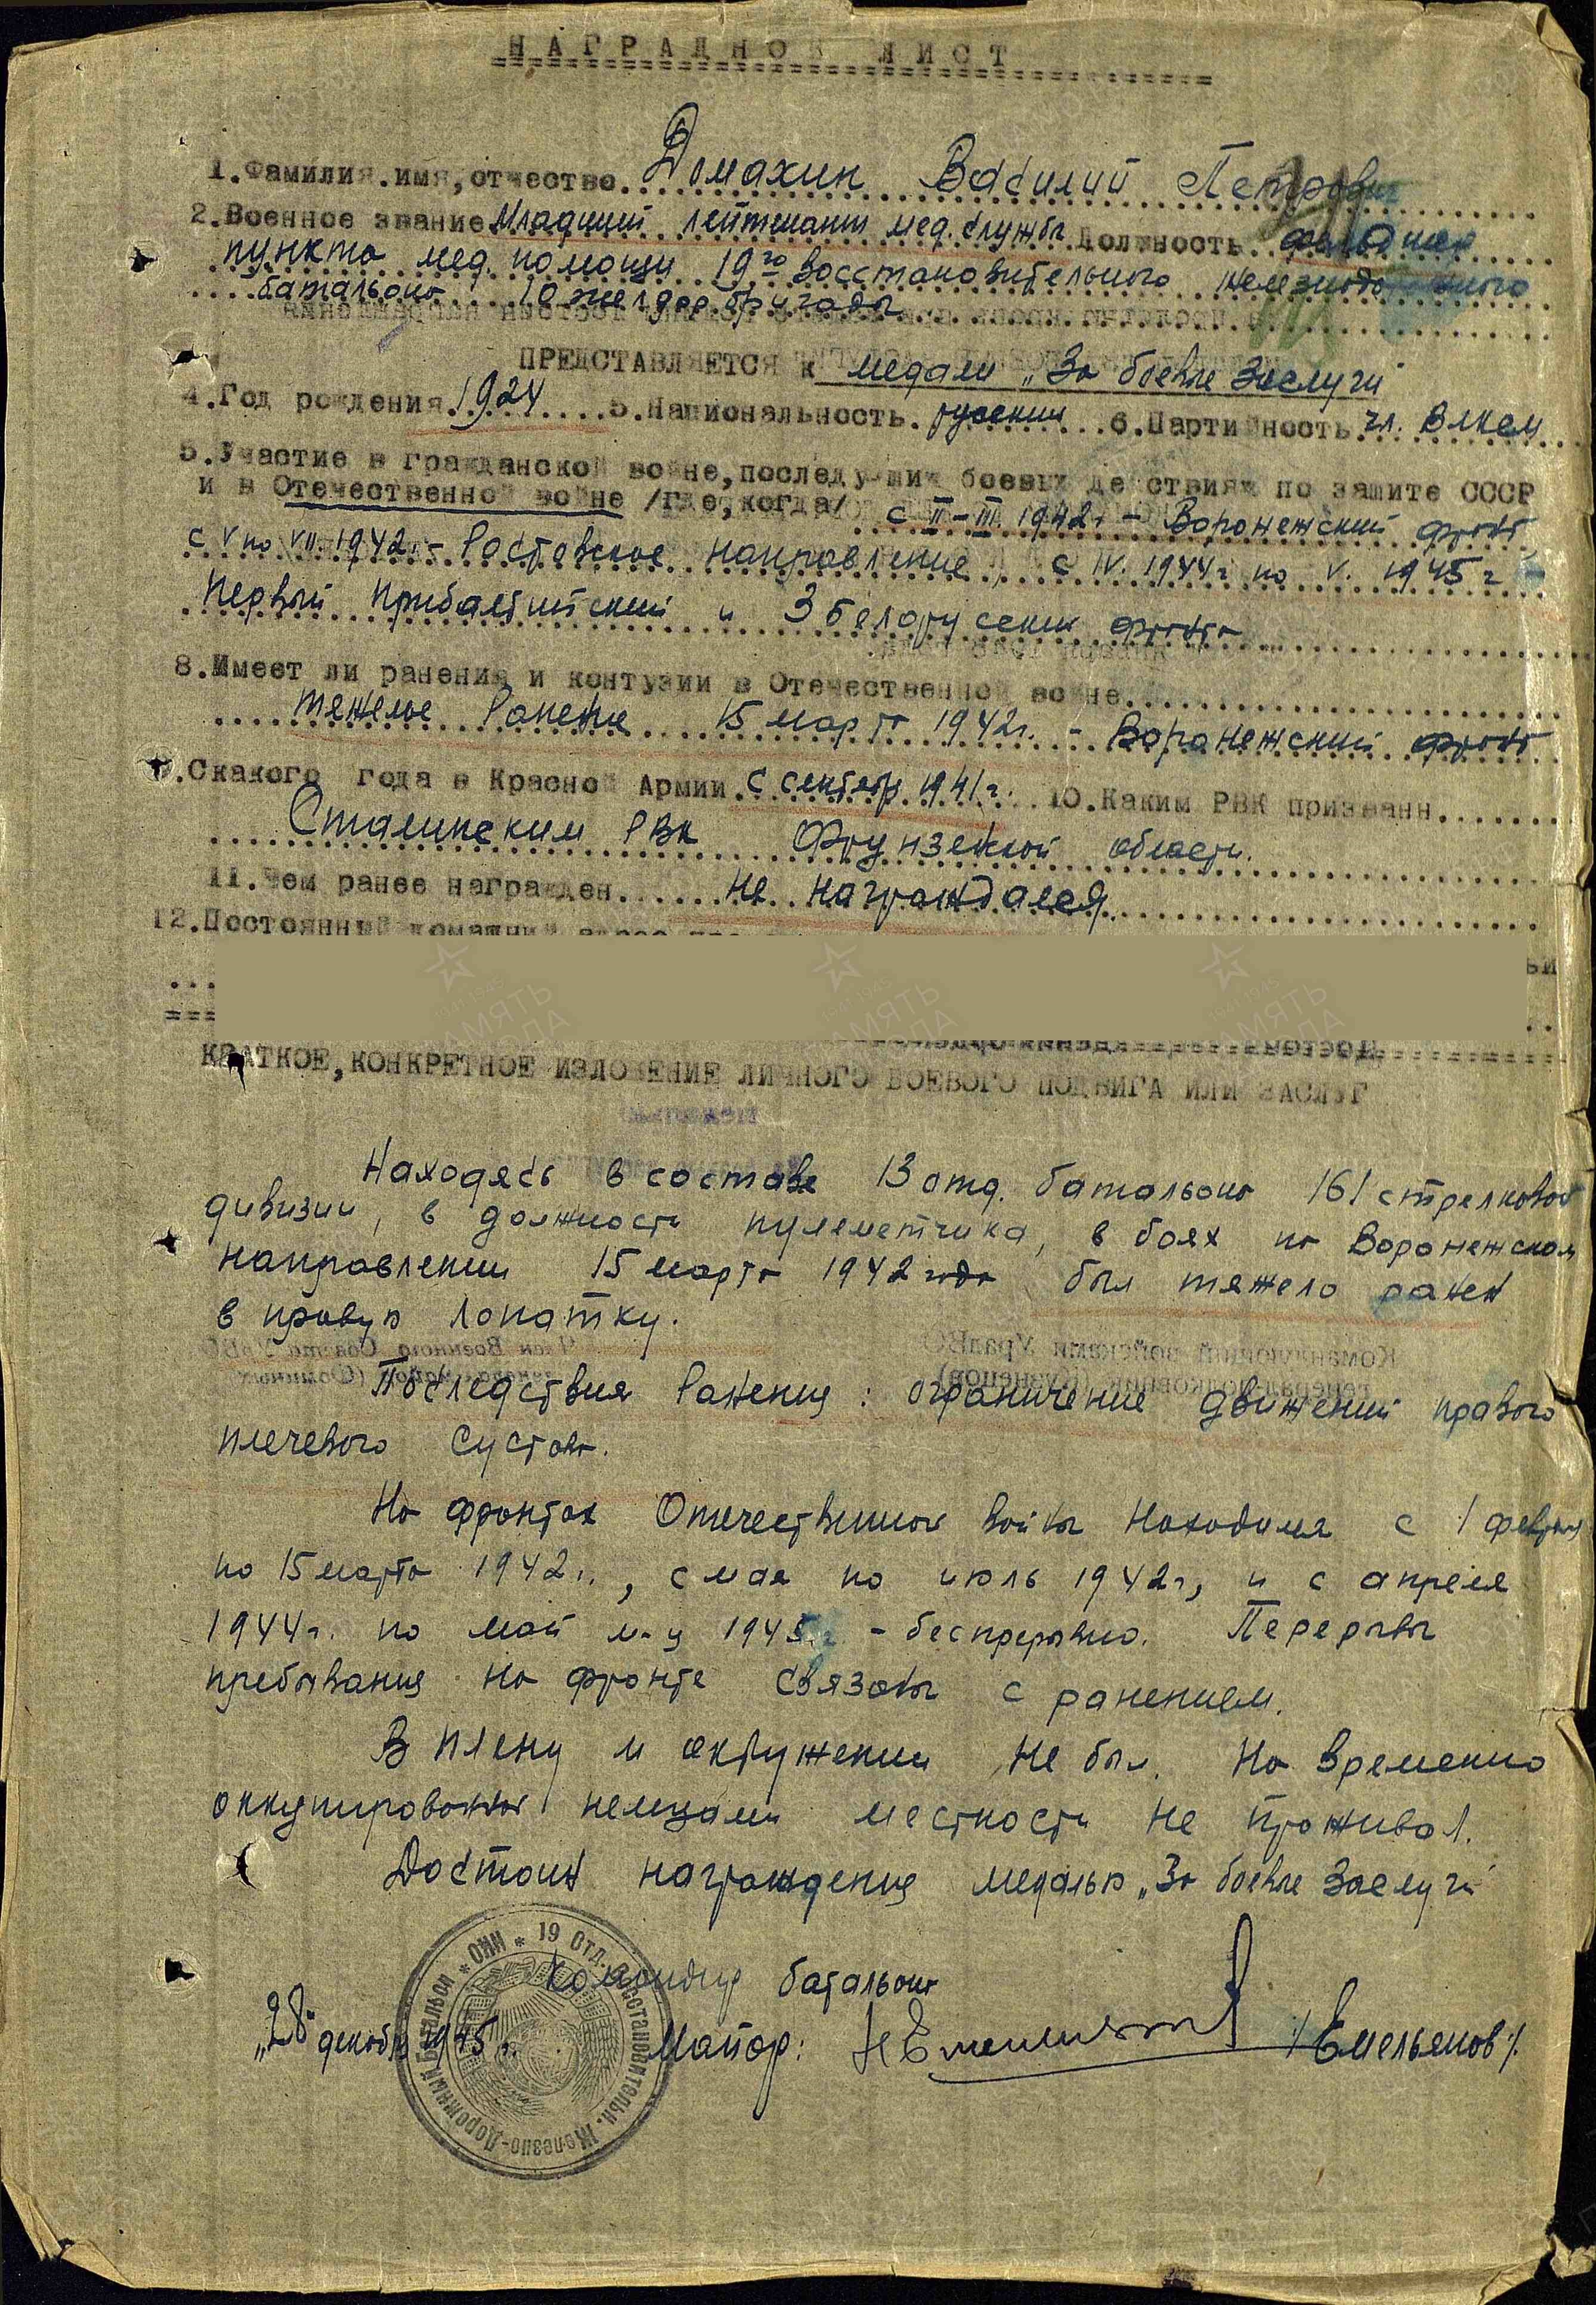 НАГРАДНОЙ ЛИСТ
1.Фамилия.имя,отчество Домахин Василий Петрович
2.Военное звание Младший лейтенант мед. службы Должность фельдшер
пункта мед. помощи 19го восстановительного железнодорожного
батальона 10 жел дор. бригады
ПРЕДСТАВЛЯЕТСЯ к медали „За боевые заслуги"
4.Год рождения 1924 5.Национальность русский 6.Партийность чл. ВЛКСМ
5.Участие в гражданской войне,последующих боевых действиях по защите СССР
и в Отечественной войне /где,когда/ с II-III 1942г - Воронежский фронт,
с V по VII.1942г.- Ростовское направление, с IV. 1944г по V. 1945г -
Первый Прибалтийский и 3 Белорусский фронта
8.Имеет ли ранения и контузии в Отечественной войне
тяжелое ранение 15 марта 1942г. - Воронежский фронт
9.Скакого года в Красной Армии с сентябр. 1941г. 10.Каким РВК призванн
Сталинским РВК Фрунзенской области.
11.Чем ранее награжден не награждался
12.Постоянный домашний адрес
КРАТКОЕ,КОНКРЕТНОЕ ИЗЛОЖЕНИЕ ЛИЧНОГО БОЕВОГО ПОДВИГА ИЛИ ЗАСЛУГ
Находясь в составе 13 отд. батальона 161 стрелковой
дивизии, в должности пулеметчика, в боях на Воронежском
направлении 15 марта 1942 года был тяжело ранен
в правую лопатку.
Последствия ранения: ограничение движений правого
плечевого сустава.
На фронтах Отечественной войны находился с 1 февраля
по 15 марта 1942г., с мая по июль 1942г, и с апреля
1944г. по май м-ц 1945г. - беспрерывно. Перерывы
пребывания на фронте связаны с ранением.
В плену и окружении не был. На временно
оккупированной немцами местности не проживал.
Достоин награждения медалью „За боевые заслуги"
Командир батальона
„28" декабря 1945г. Майор: /Емельянов/
19 Отд. Восстановительн. Железно-Дорожный Батальон * НКО *